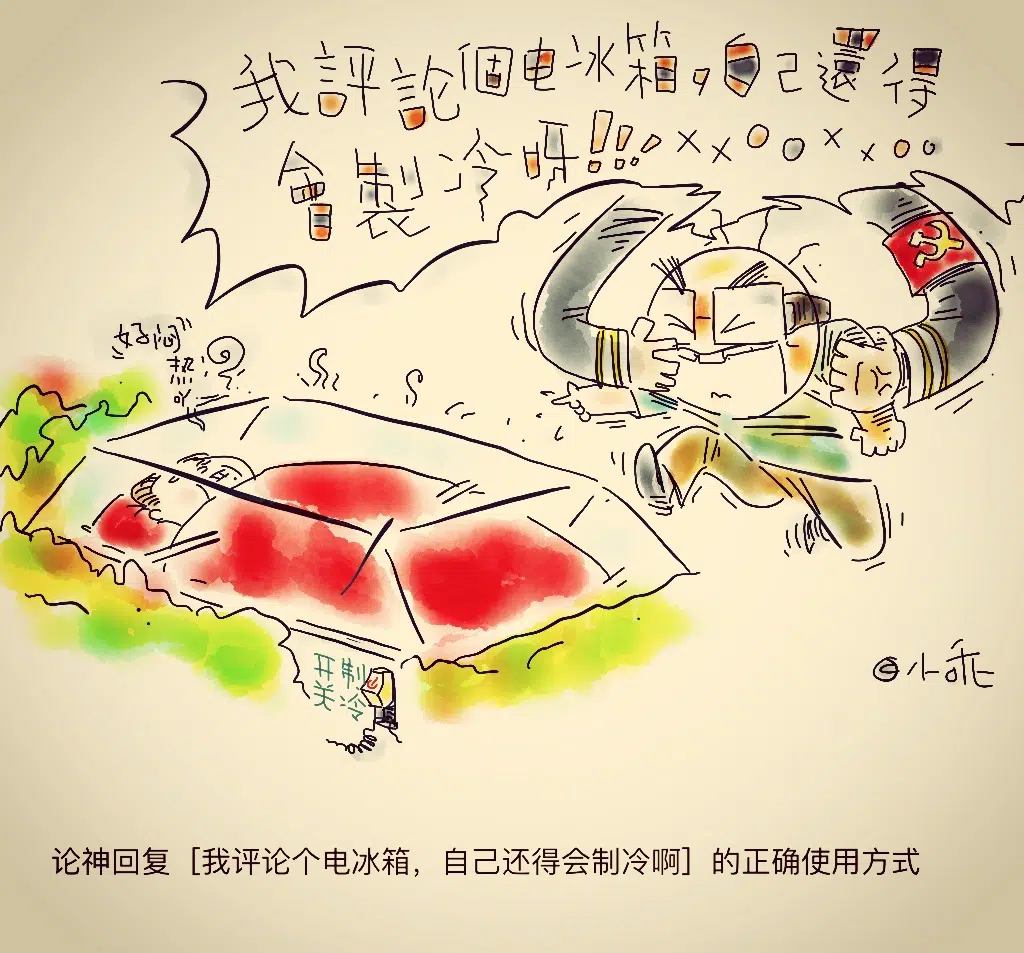 我評論個电冰箱,自己還得
會製冷呀!!!××○○××○○
好闷
热
吖
制冷
开关
@小乖
论神回复［我评论个电冰箱，自己还得会制冷啊］的正确使用方式